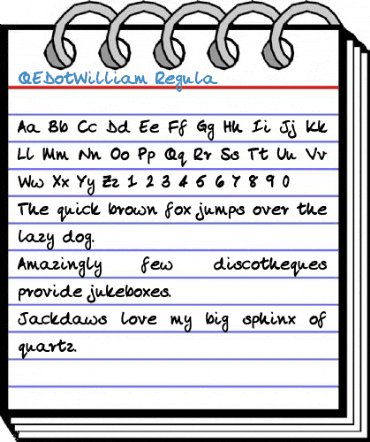 QEDotWilliam Regula
Aa Bb Cc Dd Ee Ff Gg Hh Ii Jj Kk
Ll Mm Nn Oo Pp Qq Rr Ss Tt Uu Vv
Ww Xx Yy Zz 1 2 3 4 5 6 7 8 9 0
The quick brown fox jumps over the
lazy dog.
Amazingly few discotheques
provide jukeboxes.
Jackdaws love my big sphinx of
quartz.